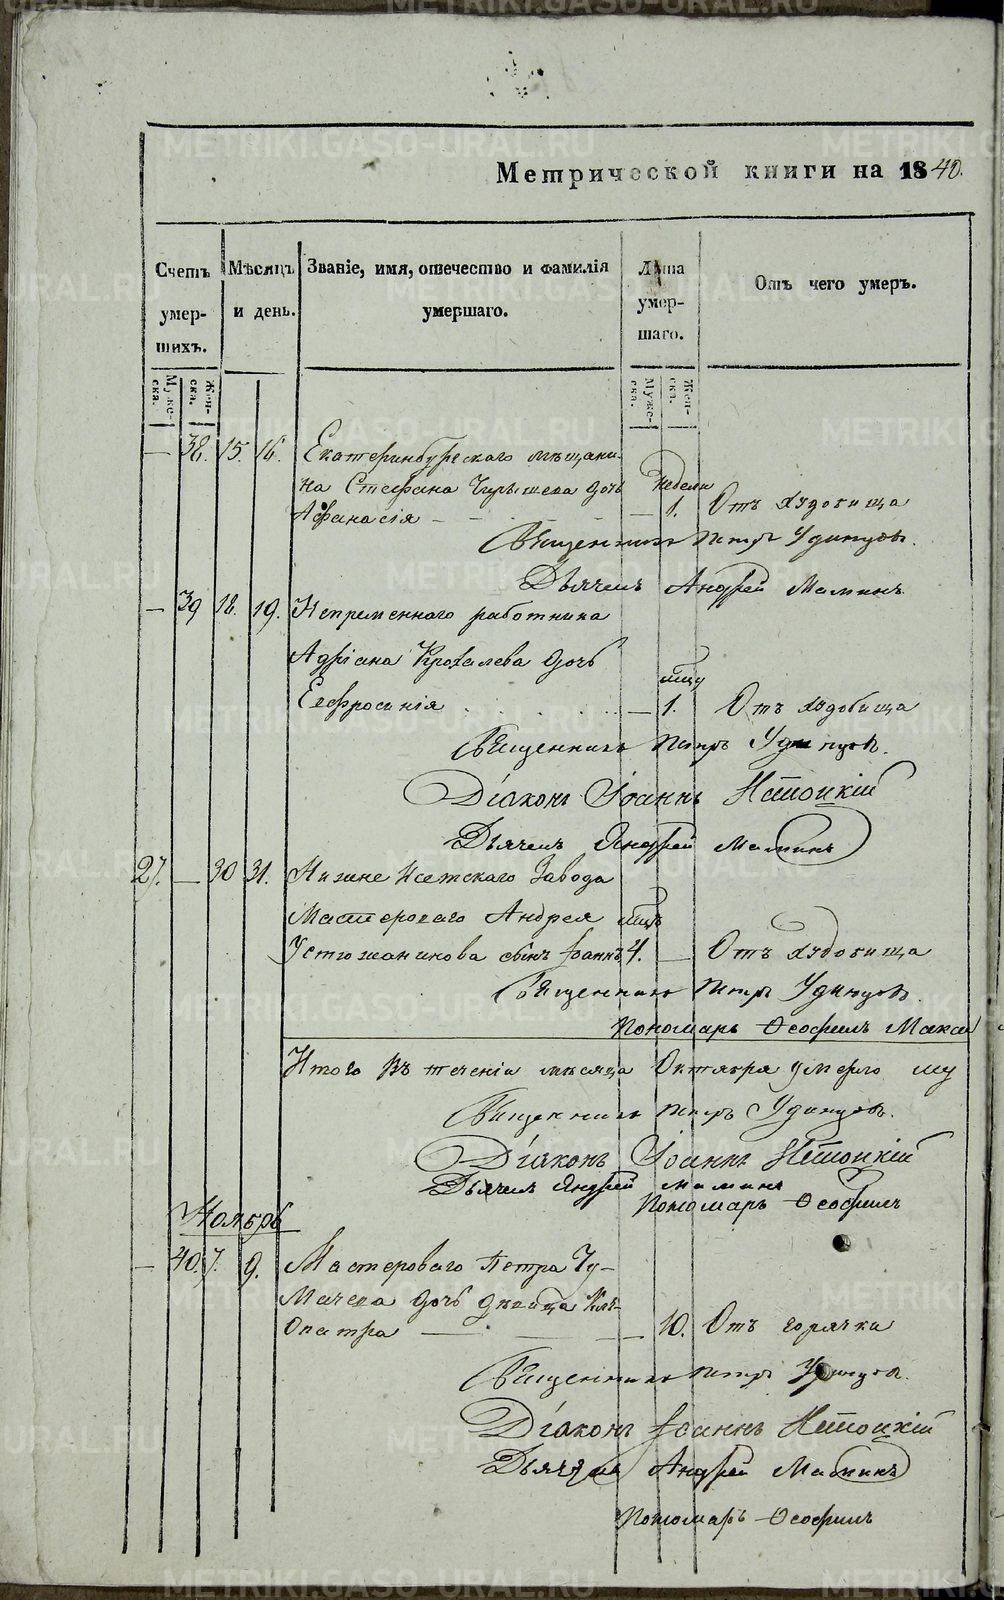 Метрической книги на 1840.
Счетъ умер-шихъ.
Мѣсяцъ и день.
Званіе, имя, отечество и фамилія умершаго.
Лѣта умер-шаго.
Отъ чего умеръ.
Муже-ска.
Жен-ска.
Муже-ска.
Жен-ска.
— 38. 15. 16. Екатеринбургскаго мѣщани-
на Стефана дочь недели
Афанасія — 1. Отъ худобища
Священникъ Петръ Удинцовъ.
Дьячекъ Андрей Маминъ
— 39 18. 19. Непременнаго работника
Адріана Крохалева дочь
Евфросинія — мцу 1. Отъ худобища
Священникъ Петръ Удинцовъ.
Діаконъ Іоаннъ
Дьячекъ Андрей Маминъ
27. — 30 31. Нижне Исетскаго Завода
Мастероваго Андрея мцъ
Устюжанинова сынъ Іоаннъ 4. — Отъ худобища
Священникъ Петръ Удинцовъ.
Пономарь Ѳеофилъ
Итого въ теченіи мѣсяца Октября умерло
Священникъ Петръ Удинцовъ.
Діаконъ Іоаннъ
Дьячекъ Андрей Маминъ
Пономарь Ѳеофилъ
Ноябрь
— 40. 7. 9. Мастероваго Петра Чу-
мачева дочь девица Кле-
опатра — — 10. Отъ горячки
Священникъ Петръ Удинцовъ.
Діаконъ Іоаннъ
Дьячекъ Андрей Маминъ
Пономарь Ѳеофилъ
METRIKI.GASO-URAL.RU